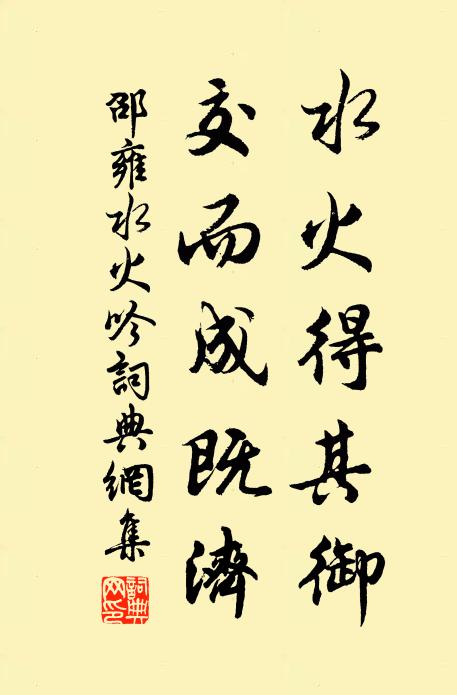 水火得其御
交而成既濟
邵雍水火吟詞典網集
詞典网印